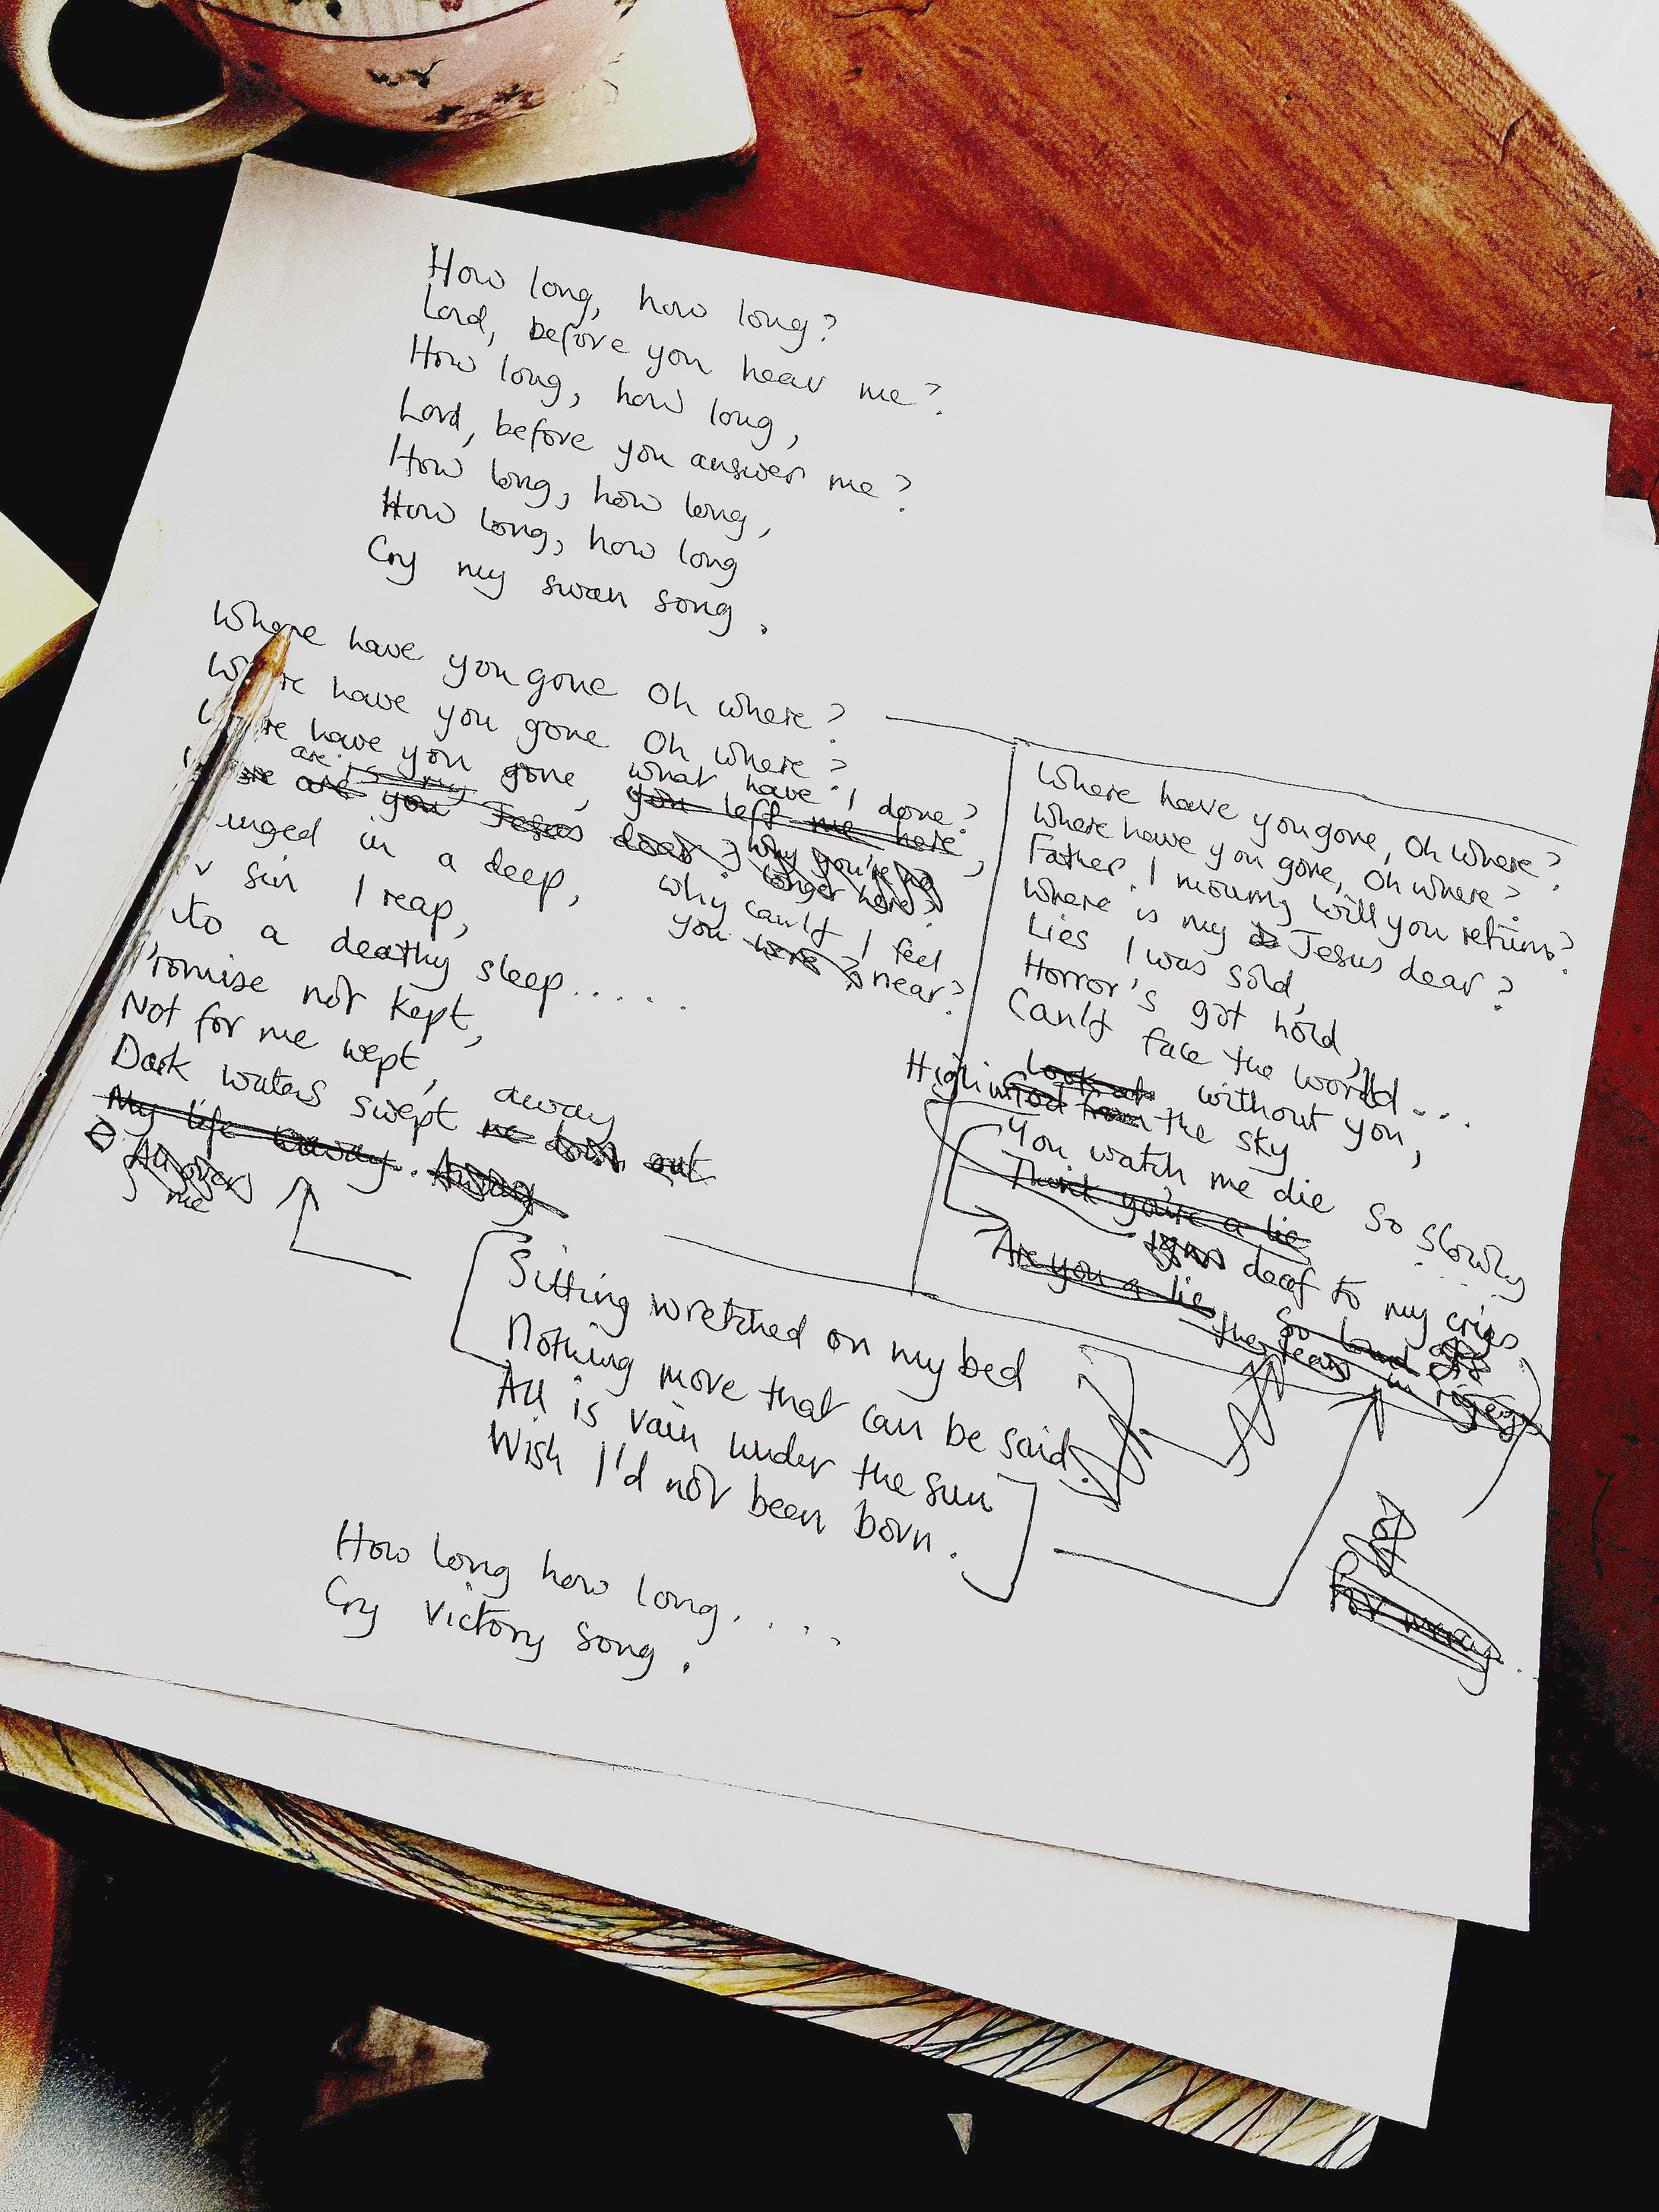 How long, how long?
Lord, before you hear me?
How long, how long,
Lord, before you answer me?
How long, how long,
How long, how long
Cry my swan song.
Where have you gone Oh where?
have you gone Oh where?
have you gone, what have I done?
are is my
are you Jesus dear, you left me here,
why you're no
longer here?
why can't I feel
you were near?
in a deep,
sin I reap,
to a deathy sleep.....
not kept,
Not for me wept,
Dark waters swept away
me down out
My life away. Away
All over
me
Where have you gone, Oh where?
Where have you gone, Oh where?
Father, I mourn, will you return?
Where is my Jesus dear?
Lies I was sold,
Horror's got hold,
Can't face the world...
Look at without you,
High in God from the sky
You watch me die so slowly....
Think you're a lie
deaf to my cries,
Are you a lie
So loud
the tears in
Sitting wretched on my bed
Nothing more that can be said,
All is vain under the sun
Wish I'd not been born.
How long how long....
Cry victory song.